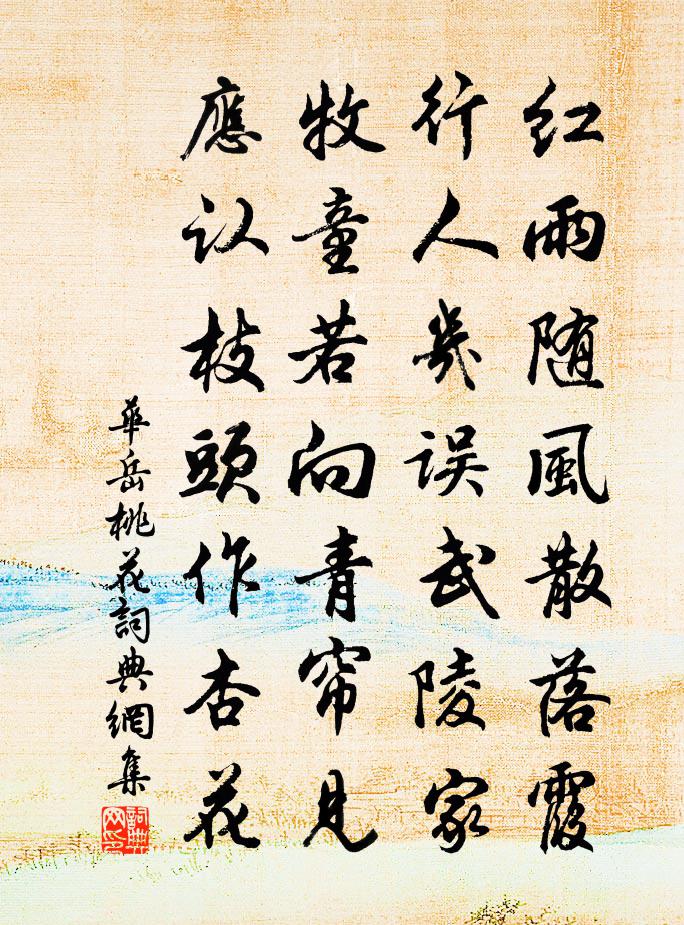 红雨随風散落霞
行人幾误武陵家
牧童若向青帘見
應认枝頭作杏花
華岳桃花詞典網集
詞典网印